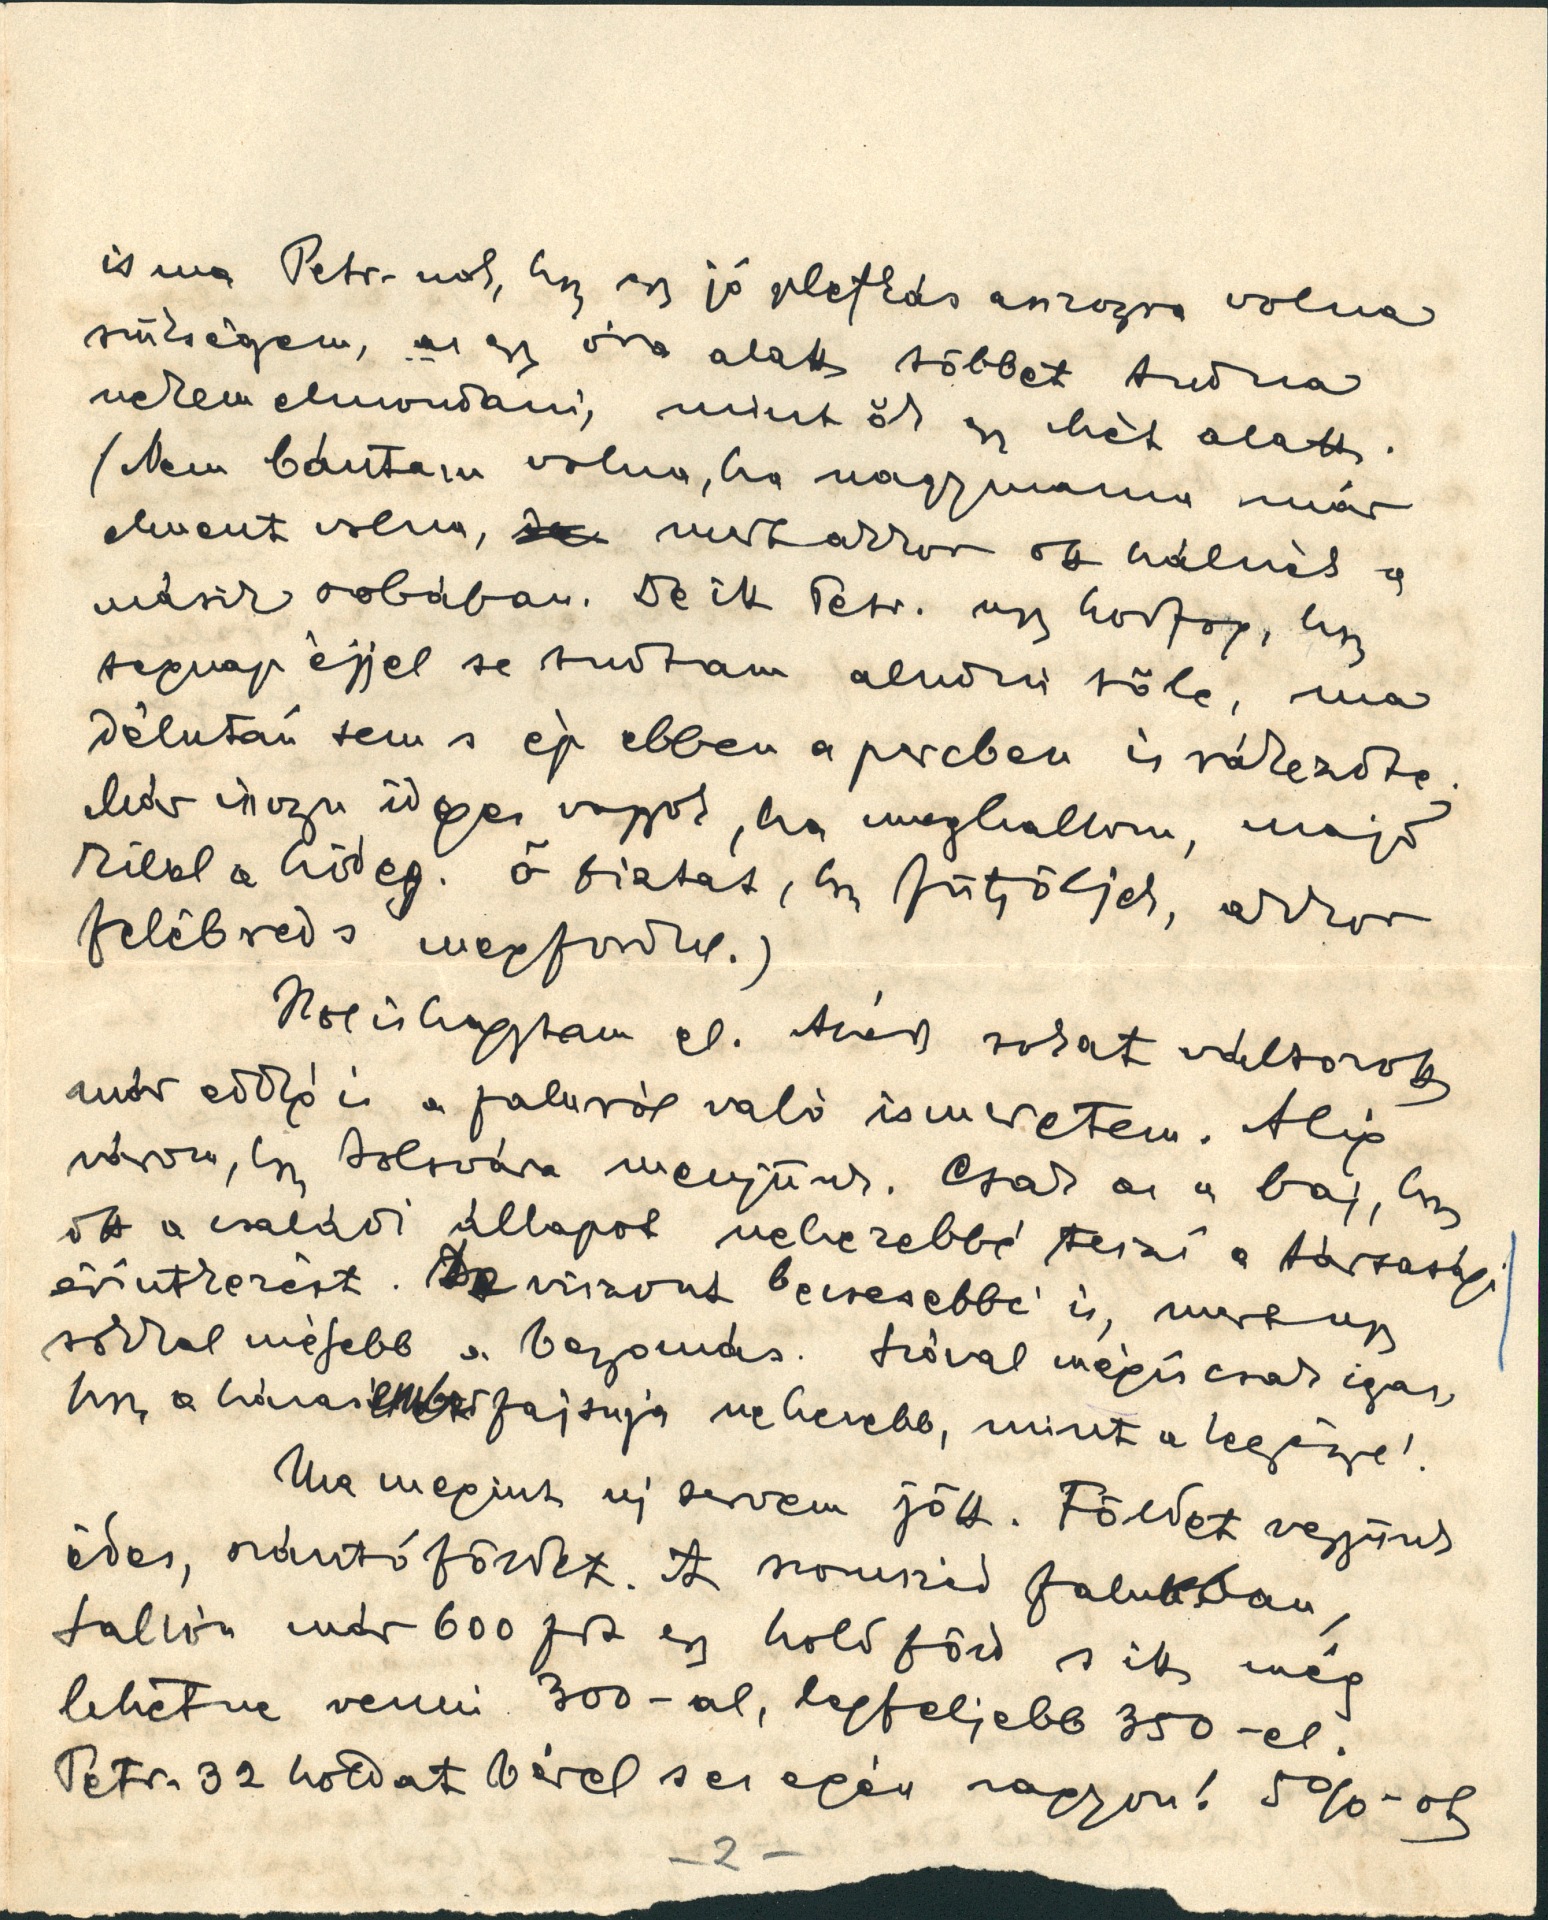 is ma Petr-nak, hgy egy jó pletykás asszonyra volna
szükségem, az egy óra alatt többet tudna
nekem elmondani, mint ők egy hét alatt.
(Nem bántam volna, ha nagymama már
elment volna, de mert akkor ott hálnék a
másik szobában. De itt Petr. ugy hortyog, hgy
tegnap éjjel se tudtam aludni tőle, ma
délután sem s ép ebben a percben is rákezdte.
Már iszonyu ideges vagyok, ha meghallom, majd
kilel a hideg. Ő biztat, hgy füttyöljek, akkor
felébred s megfordul.)
Hol is hagytam el. Azért sokat változott
már eddig is a faluról való ismeretem. Alig
várom, hgy Tolsvára menjünk. Csak az a baj, hgy
ott a családi állapot nehezebbé teszi a társasági
érintkezést. De viszont becsesebbé is, mert ugy
sokkal mélyebb a bagomás. Szóval mégis csak igaz,
hgy a házasember fajsulya nehezebb, mint a legényé!
Ma megint uj tervem jött. Földet vegyünk
édes, szántóföldet. A szomszéd faluban,
Tallón már 600 frt egy hold föld s itt még
lehetne venni 300-al, legfeljebb 350-el.
Petr. 32 holdat bérel s ez egész vagyon! 5%-ot
- 2 -